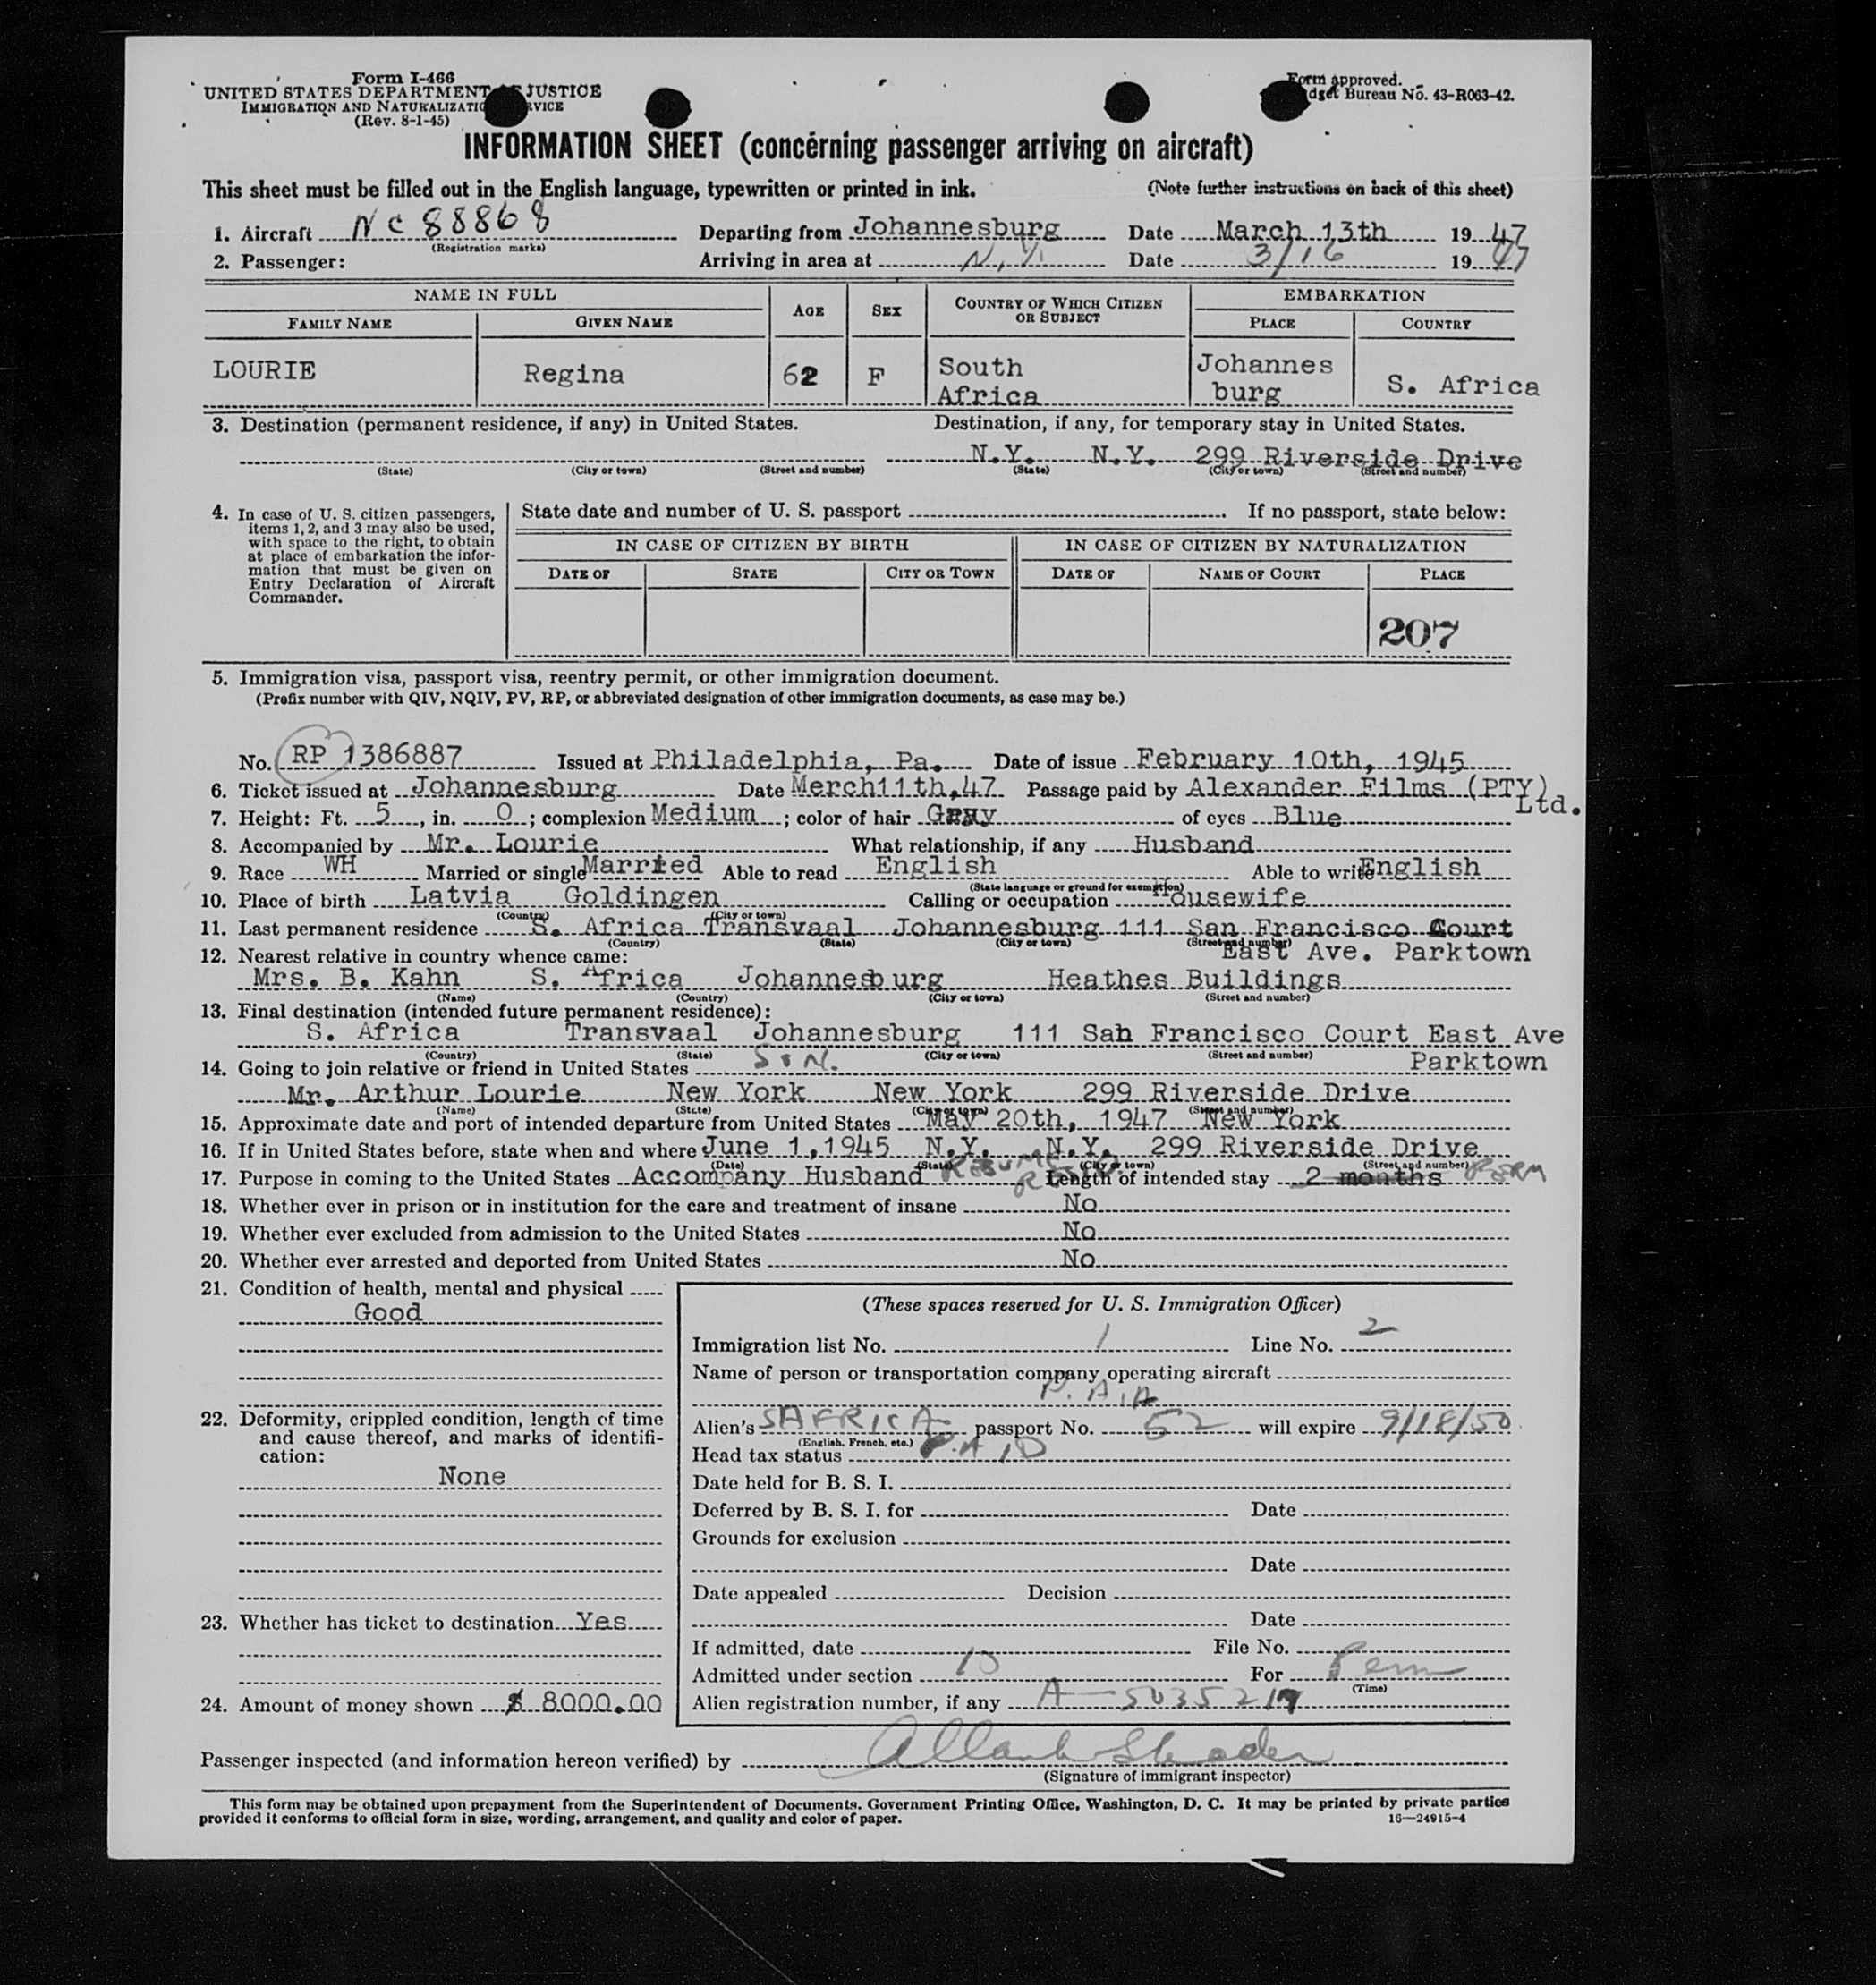 Form I-466
UNITED STATES DEPARTMENT JUSTICE
IMMIGRATION AND NATURALIZATIO RVICE
(Rev. 8-1-45)
Form approved.
dget Bureau No. 43-R063-42.
INFORMATION SHEET (concerning passenger arriving on aircraft)
This sheet must be filled out in the English language, typewritten or printed in ink. (Note further instructions on back of this sheet)
1. Aircraft NC 88868 Departing from Johannesburg Date March 13th 19 47
(Registration marks)
2. Passenger: Arriving in area at N.Y. Date 3/16 19 47
NAME IN FULL AGE SEX COUNTRY OF WHICH CITIZEN OR SUBJECT EMBARKATION
FAMILY NAME GIVEN NAME PLACE COUNTRY
LOURIE Regina 62 F South Africa Johannes burg S. Africa
3. Destination (permanent residence, if any) in United States. Destination, if any, for temporary stay in United States.
N.Y. N.Y. 299 Riverside Drive
(State) (City or town) (Street and number) (State) (City or town) (Street and number)
4. In case of U. S. citizen passengers, items 1, 2, and 3 may also be used, with space to the right, to obtain at place of embarkation the information that must be given on Entry Declaration of Aircraft Commander.
State date and number of U. S. passport . If no passport, state below:
IN CASE OF CITIZEN BY BIRTH IN CASE OF CITIZEN BY NATURALIZATION
DATE OF STATE CITY OR TOWN DATE OF NAME OF COURT PLACE
207
5. Immigration visa, passport visa, reentry permit, or other immigration document.
(Prefix number with QIV, NQIV, PV, RP, or abbreviated designation of other immigration documents, as case may be.)
No. RP 1386887 Issued at Philadelphia, Pa. Date of issue February 10th, 1945
6. Ticket issued at Johannesburg Date Merch11th,47 Passage paid by Alexander Films (PTY) Ltd.
7. Height: Ft. 5, in. 0; complexion Medium; color of hair Gray of eyes Blue
8. Accompanied by Mr. Lourie What relationship, if any Husband
9. Race WH Married or single Married Able to read English Able to write English
(State language or ground for exemption)
10. Place of birth Latvia Goldingen Calling or occupation Housewife
(Country) (City or town)
11. Last permanent residence S. Africa Transvaal Johannesburg 111 San Francisco Court
(Country) (State) (City or town) (Street and number)
East Ave. Parktown
12. Nearest relative in country whence came:
Mrs. B. Kahn S. Africa Johannesburg Heathes Buildings
(Name) (Country) (City or town) (Street and number)
13. Final destination (intended future permanent residence):
S. Africa Transvaal Johannesburg 111 San Francisco Court East Ave
(Country) (State) (City or town) (Street and number)
Parktown
14. Going to join relative or friend in United States SON.
Mr. Arthur Lourie New York New York 299 Riverside Drive
(Name) (State) (City or town) (Street and number)
15. Approximate date and port of intended departure from United States May 20th, 1947 New York
16. If in United States before, state when and where June 1,1945 N.Y. N.Y. 299 Riverside Drive
(Date) (State) (City or town) (Street and number)
17. Purpose in coming to the United States Accompany Husband RESUME RESID. Length of intended stay 2 months PERM
18. Whether ever in prison or in institution for the care and treatment of insane No
19. Whether ever excluded from admission to the United States No
20. Whether ever arrested and deported from United States No
21. Condition of health, mental and physical
Good
22. Deformity, crippled condition, length of time and cause thereof, and marks of identification:
None
23. Whether has ticket to destination Yes
24. Amount of money shown $ 8000.00
(These spaces reserved for U. S. Immigration Officer)
Immigration list No. 1 Line No. 2
Name of person or transportation company operating aircraft
P.A.A
Alien's SAFRICA passport No. 52 will expire 9/18/50
(English, French, etc.)
Head tax status PAID
Date held for B. S. I.
Deferred by B. S. I. for Date
Grounds for exclusion
Date
Date appealed Decision
Date
If admitted, date File No.
Admitted under section 10 For Perm
(Time)
Alien registration number, if any A-5035217
Passenger inspected (and information hereon verified) by
(Signature of immigrant inspector)
This form may be obtained upon prepayment from the Superintendent of Documents, Government Printing Office, Washington, D. C. It may be printed by private parties
provided it conforms to official form in size, wording, arrangement, and quality and color of paper. 16—24915-4